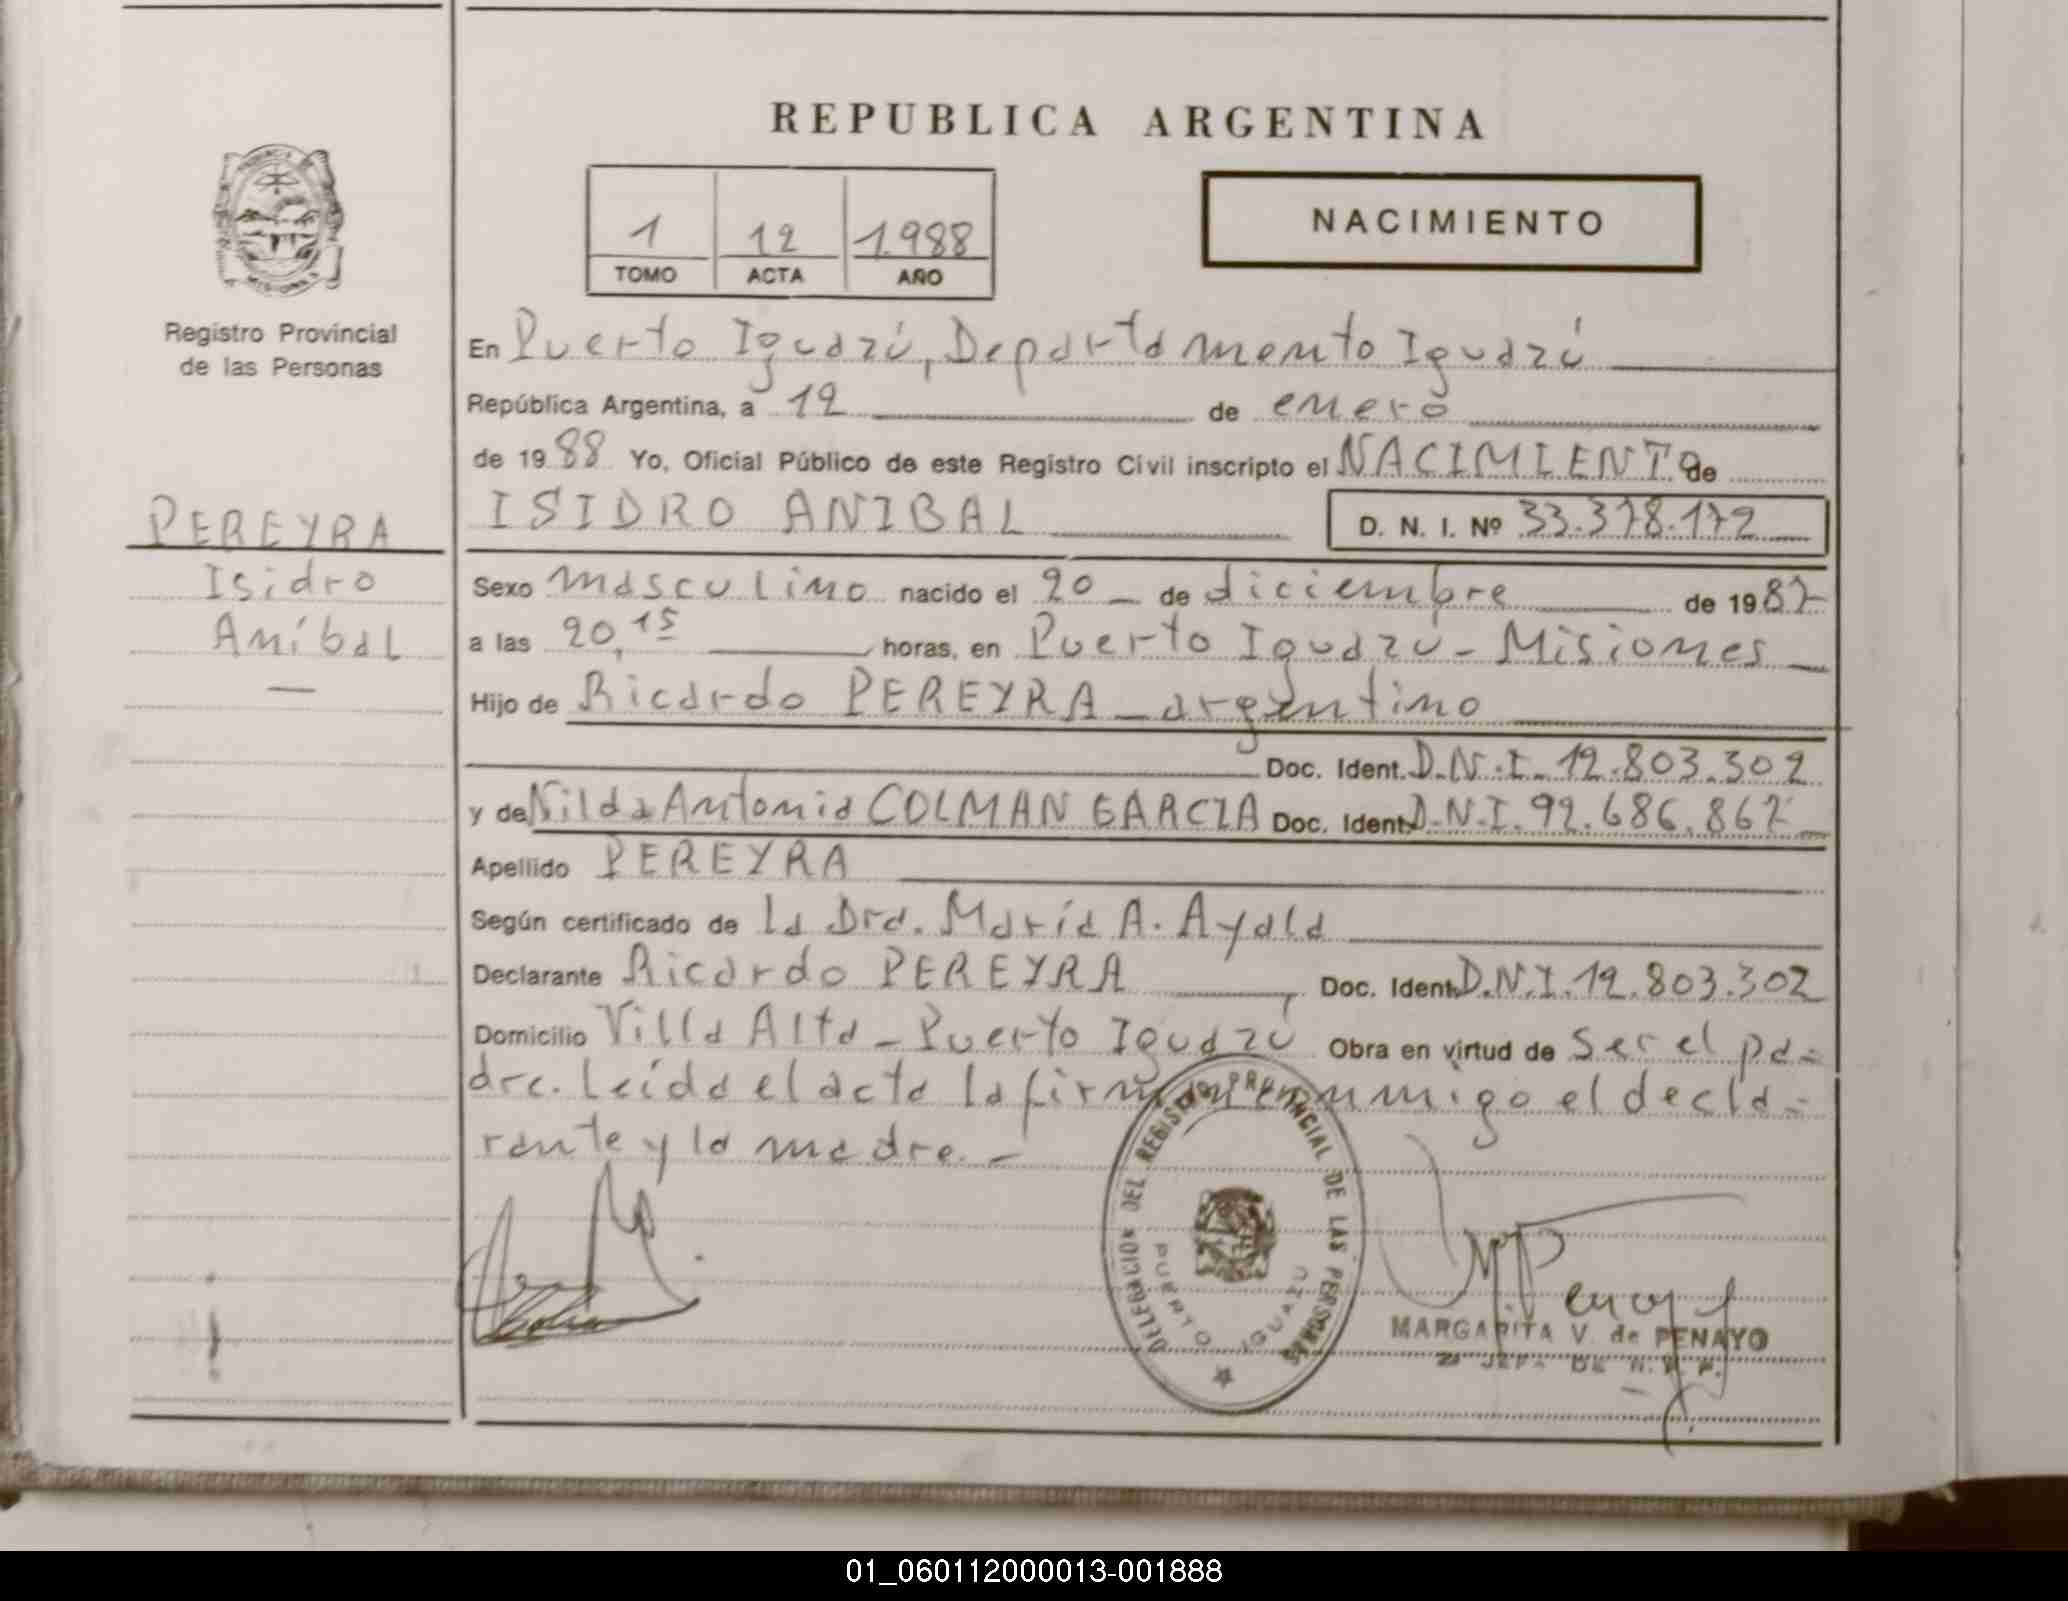 REPUBLICA ARGENTINA
1 12 1.988
TOMO ACTA AÑO
NACIMIENTO
Registro Provincial
de las Personas
PEREYRA
Isidro
Aníbal
En Puerto Iguazú, Departamento Iguazú
República Argentina, a 12 de enero
de 1988 Yo, Oficial Público de este Registro Civil inscripto el NACIMIENTO de
ISIDRO ANIBAL D. N. I. Nº 33.378.172
Sexo masculino nacido el 20 de diciembre de 1987
a las 20,15 horas, en Puerto Iguazú - Misiones
Hijo de Ricardo PEREYRA - argentino
Doc. Ident. D.N.I. 12.803.302
y de Nilda Antonia COLMAN GARCIA Doc. Ident. D.N.I. 92.686.867
Apellido PEREYRA
Según certificado de la Dra. María A. Ayala
Declarante Ricardo PEREYRA, Doc. Ident. D.N.I. 12.803.302
Domicilio Villa Alta - Puerto Iguazú Obra en virtud de ser el pa-
dre. Leída el acta la firman conmigo el decla-
rante y la madre. -
DELEGACION DEL REGISTRO PROVINCIAL DE LAS PERSONAS
PUERTO IGUAZU
MARGARITA V. de PENAYO
JEFA DE R. P. P.
01_060112000013-001888